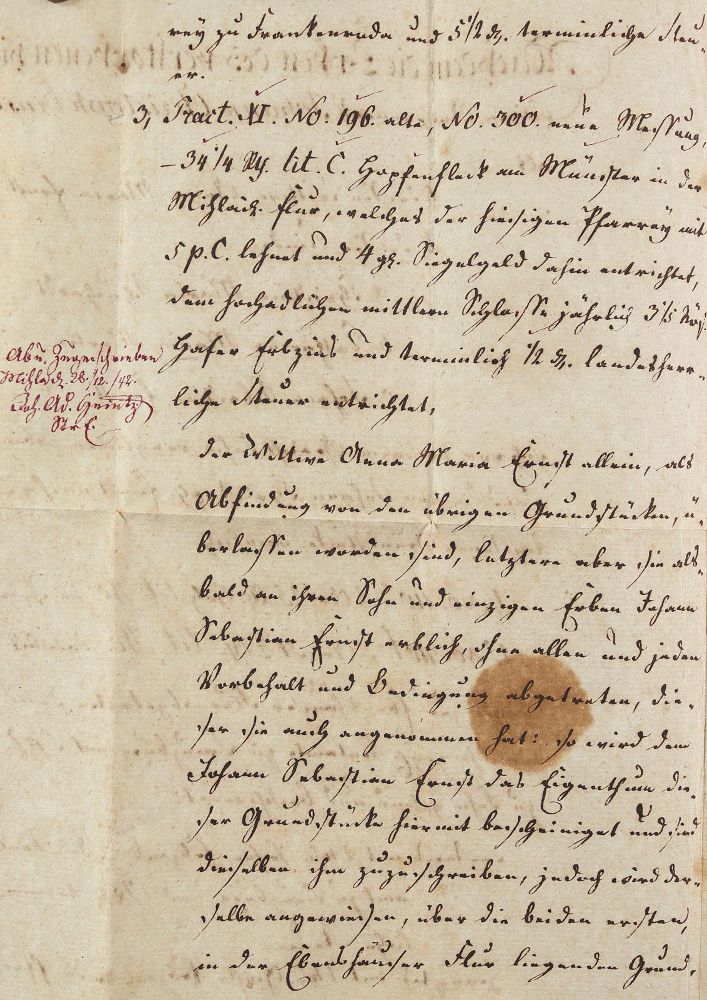 rey zu Frankenroda und 5 1/2 d. terminliche Steu-
er.
3, Tract. XI. No. 196. alte, No. 300. neue Messung,
- 34 1/4 Rth. lit. C. Hopfenfleck am Münster in der
Mihlaer Flur, welches der hiesigen Pfarrey mit
5 p. C. lehnet und 4 gr. Siegelgeld dahin entrichtet,
dem hochadlichen mittlern Schlosse jährlich 3 1/5
Hafer Erbzins und terminlich 1/2 d. landesherr-
liche Steuer entrichtet,
der Wittwe Anna Maria Ernst allein, als
Abfindung von den übrigen Grundstücken, ü-
berlassen worden sind, letztere aber sie als-
bald an ihren Sohn und einzigen Erben Johann
Sebastian Ernst erblich, ohne allen und jeden
Vorbehalt und Bedingung abgetreten, die-
ser sie auch angenommen hat: so wird dem
Johann Sebastian Ernst das Eigenthum die-
ser Grundstücke hiermit bescheiniget und sind
dieselben ihm zuzuschreiben, jedoch wird der-
selbe angewiesen, über die beiden ersten,
in der Ebenshäuser Flur liegenden Grund-
Ab u. zugeschrieben
Mihla d. 28./12./42.
Ad.
StrE.